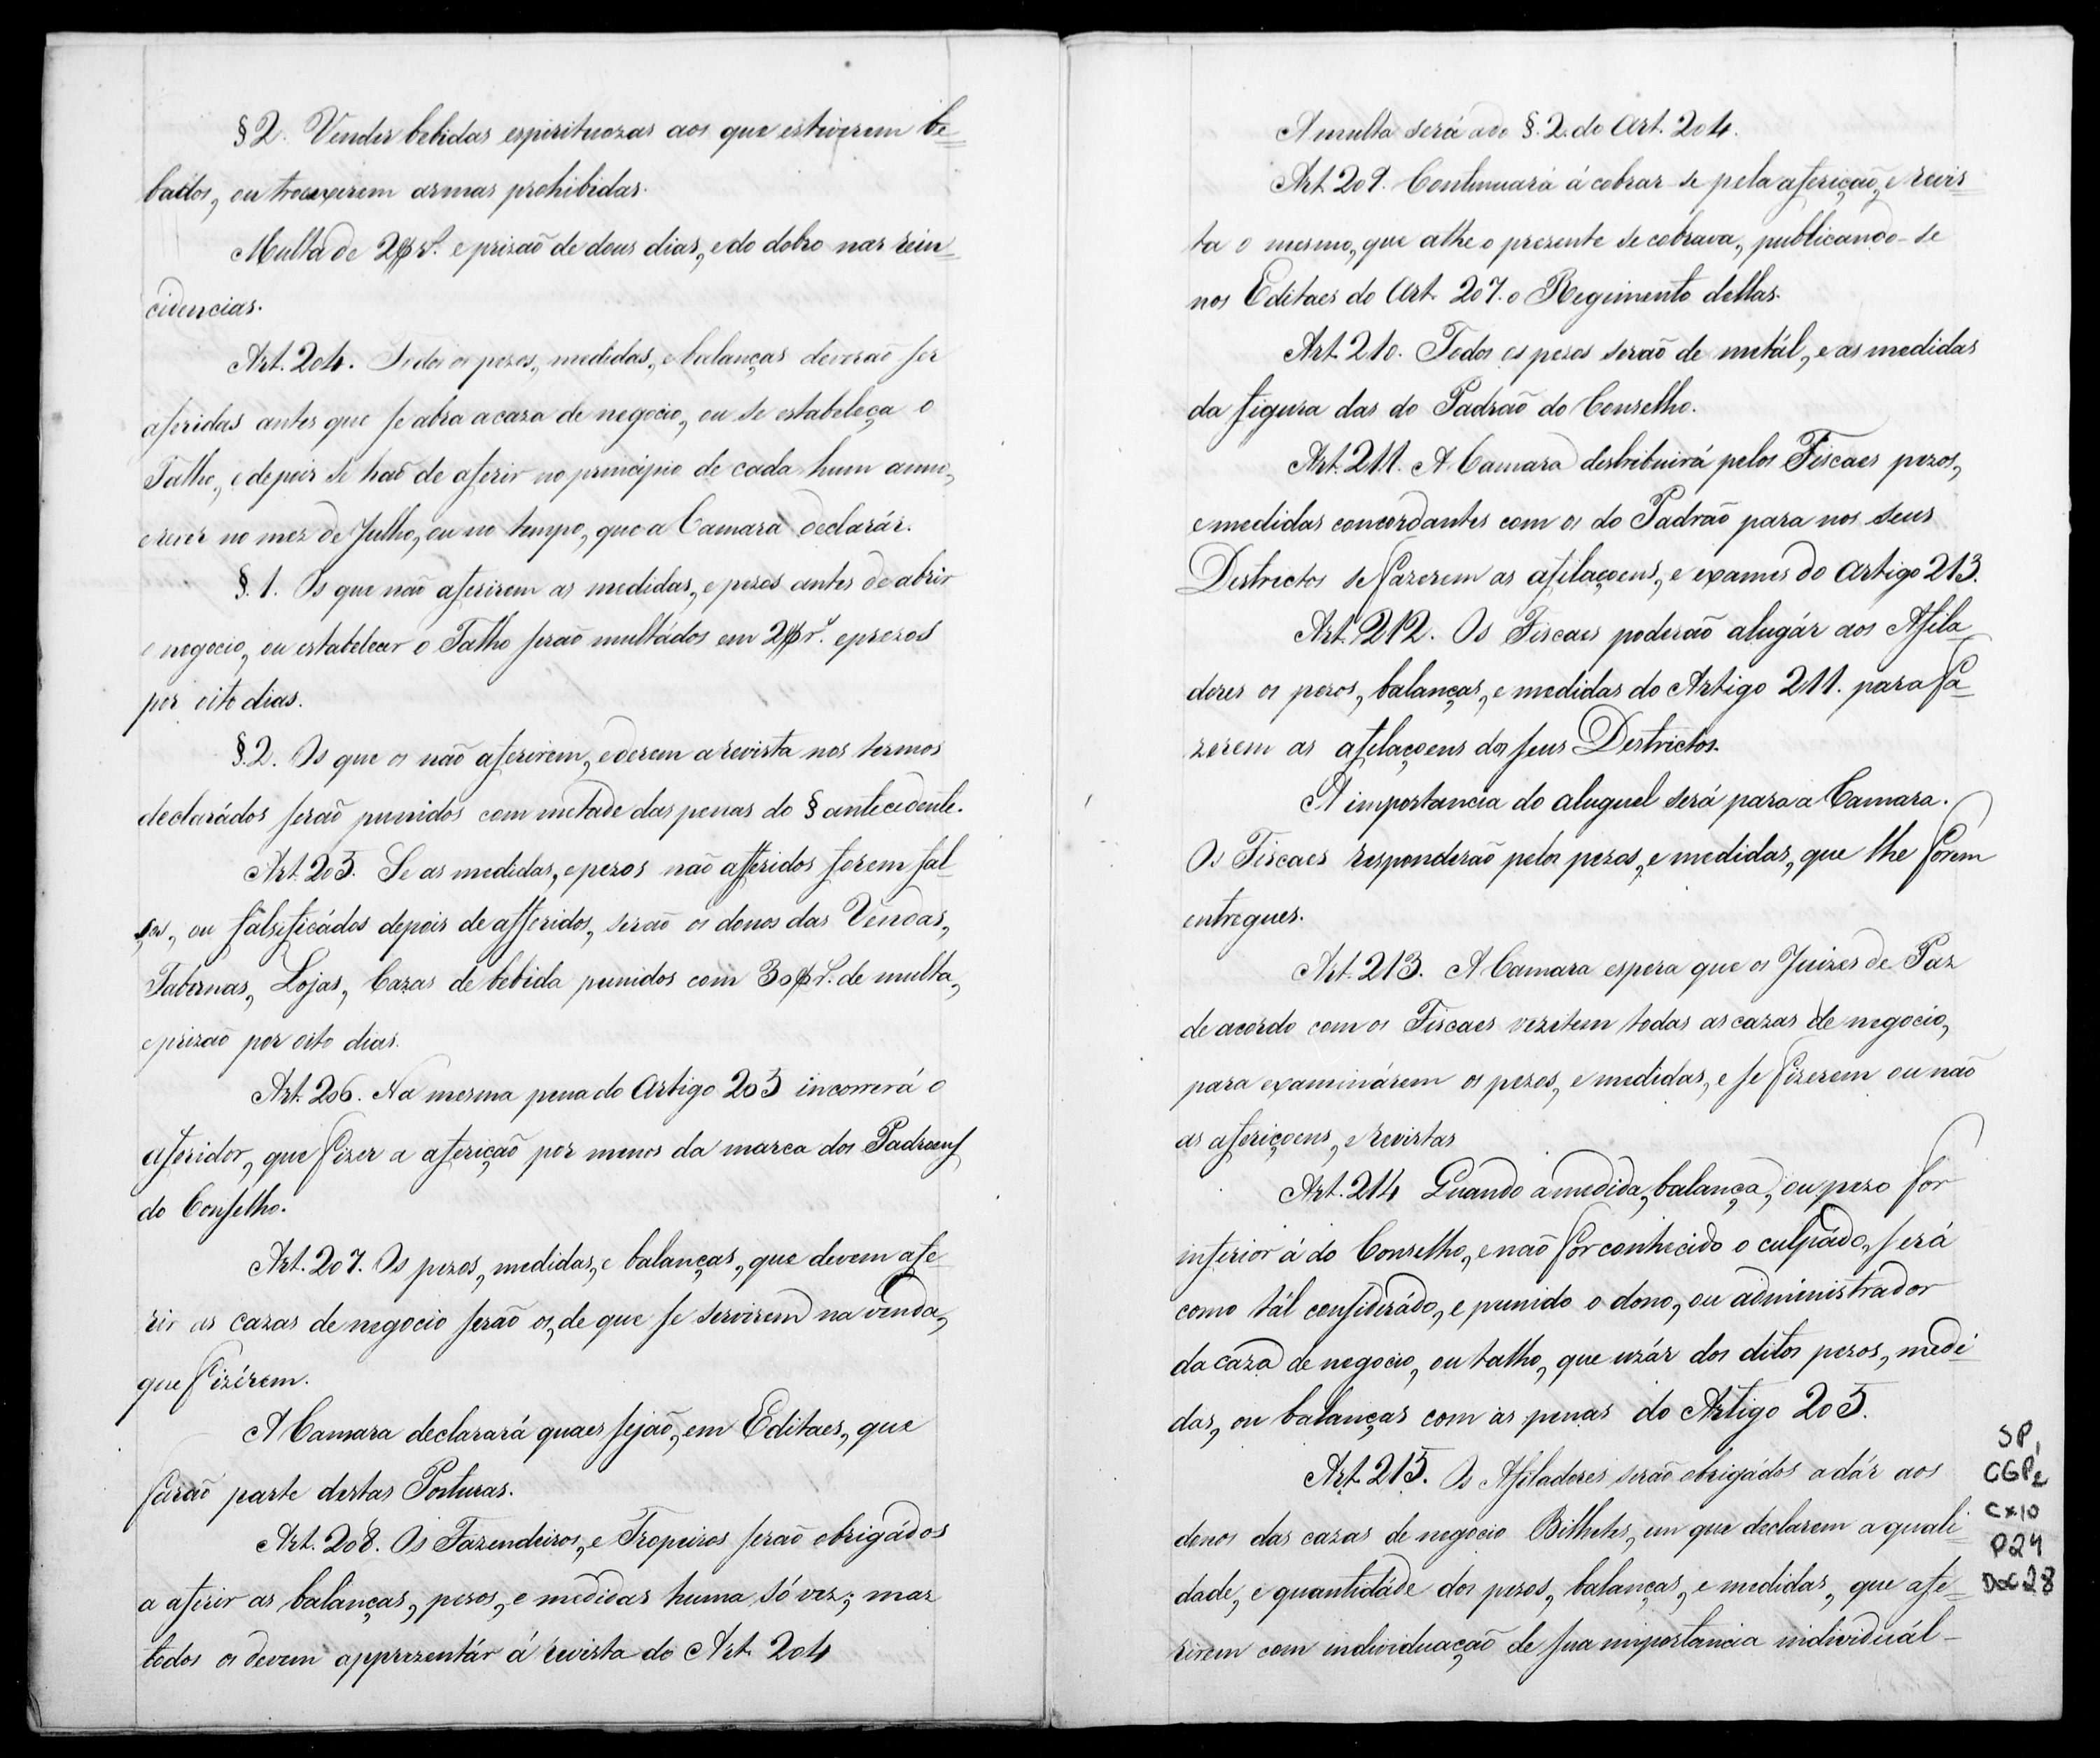 §2. Vender bebidas espirituozas aos que estiverem be=
bados, ou trouxerem armas prohibidas.
Multa de 2$rs. e prizaõ de dous dias, e do dobro nas rein=
cidencias.
Art. 204. Todos os pezos, medidas, e balanças deveraõ ser
aferidas antes que se abra a caza de negocio, ou se estabeleça o
Talho, e depois se haõ de aferir no principio de cada hum anno,
e rever no mez de Julho, ou no tempo, que a Camara declarár.
§.1. Os que naõ aferirem as medidas, e pezos antes de abrir
o negocio, ou estabelecer o Talho seraõ multádos em 2$rs. e prezos
por oito dias.
§.2. Os que os naõ aferirem, e derem a revista nos termos
declarádos seraõ punidos com metade das penas do § antecedente.
Art. 205. Se as medidas, e pezos naõ afferidos forem fal=
sos, ou falsificádos depois de afferidos, seraõ os donos das Vendas,
Tabernas, Lojas, Cazas de bebida punidos com 30$rs. de multa,
e prizaõ por oito dias.
Art. 206. Na mesma pena do Artigo 205 incorrerá o
aferidor, que fizer a aferiçaõ por menos da marca dos Padroens
do Conselho.
Art. 207. Os pezos, medidas, e balanças, que devem afe=
rir as cazas de negocio seraõ os, de que se servirem na venda,
que fizérem.
A Camara declarará quaes sejaõ, em Editaes, que
faraõ parte destas Posturas.
Art. 208. Os Fazendeiros, e Tropeiros seraõ obrigádos
a aferir as balanças, pesos, e medidas huma só vez; mas
todos os devem apprezentár á revista do Art. 204
A multa será a do §.2. do Art. 204.
Art. 209. Continuará á cobrar-se pela aferiçaõ, e revis=
ta o mesmo, que athe o presente se cobrava, publicando-se
nos Editaes do Art. 207. o Regimento dellas.
Art. 210. Todos os pesos seraõ de metál, e as medidas
da figura das do Padraõ do Conselho.
Art. 211. A Camara destribuirá pelos Fiscaes pezos,
e medidas concordantes com os do Padraõ para nos seus
Destrictos se fazerem as afilaçoens, e exames do Artigo 213.
Art. 212. Os Fiscaes poderaõ alugár aos Afila=
dores os pezos, balanças, e medidas do Artigo 211. para fa=
zerem as afilaçoens dos seus Destrictos.
A importancia do aluguel será para a Camara.
Os Fiscaes responderaõ pelos pezos, e medidas, que lhe forem
entregues.
Art. 213. A Camara espera que os Juizes de Paz
de acordo com os Fiscaes vezitem todas as cazas de negocio,
para examinárem os pezos, e medidas, e se fizerem ou naõ
as afericoens, e revistas
Art. 214 Quando a medida, balança, ou pezo for
inferior á do Conselho, e naõ for conhecido o culpádo, será
como tál considerádo, e punido o dono, ou administrador
da caza de negocio, ou talho, que uzár dos ditos pezos, medi=
das, ou balanças com as penas do Artigo 205.
Art. 215. Os Afiladores seraõ obrigádos a dár aos
donos das cazas de negocio Bilhetes, em que declarem a quali=
dade, e quantidáde dos pezos, balanças, e medidas, que afe=
rirem com individuaçaõ de sua importancia individuál-
SP,
CGP2
Cx10
P24
Doc 28